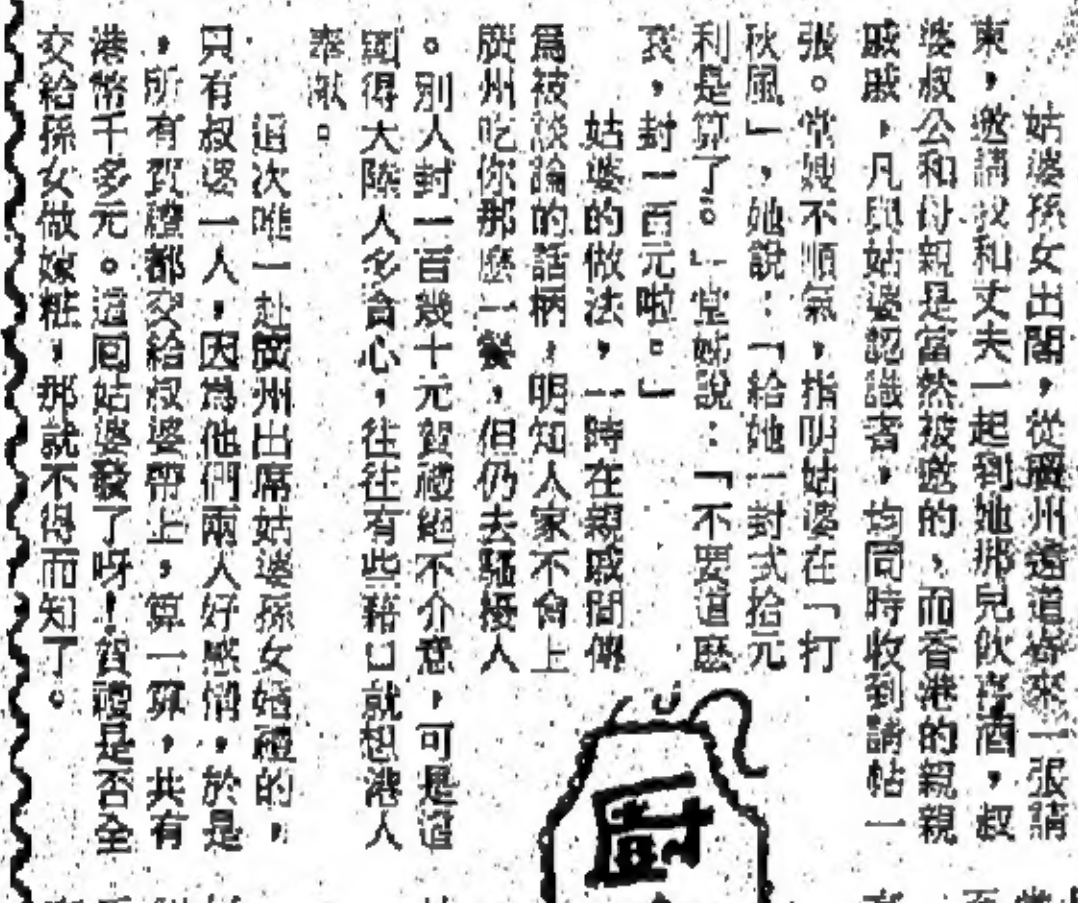 姑婆孫女出閣，從廣州遠道寄來一張請
柬，邀請我和丈夫一起到她那兒飲喜酒，叔
婆叔公和母親是當然被邀的，而香港的親親
戚戚，凡與姑婆認識者，均同時收到請帖一
張。堂嫂不順氣，指明姑婆在「打
秋風」，她說：「給她一封式拾元
利是算了。」堂姊說：「不要這麼
衰，封一百元啦。」
姑婆的做法，一時在親戚間傳
爲被談論的話柄，明知人家不會上
廣州吃你那麼一餐，但仍去騷擾人
。別人封一百幾十元賀禮絕不介意，可是這
大陸人多貪心，往往有些藉口就想港人
奉獻。
這次唯一赴廣州出席姑婆孫女婚禮的，
只有叔婆一人，因爲他們兩人好感情，於是
，所有賀禮都交給叔婆帶上，算一算，共有
港幣千多元。這囘姑婆發了呀！賀禮是否全
交給孫女做嫁粧，那就不得而知了。
廚